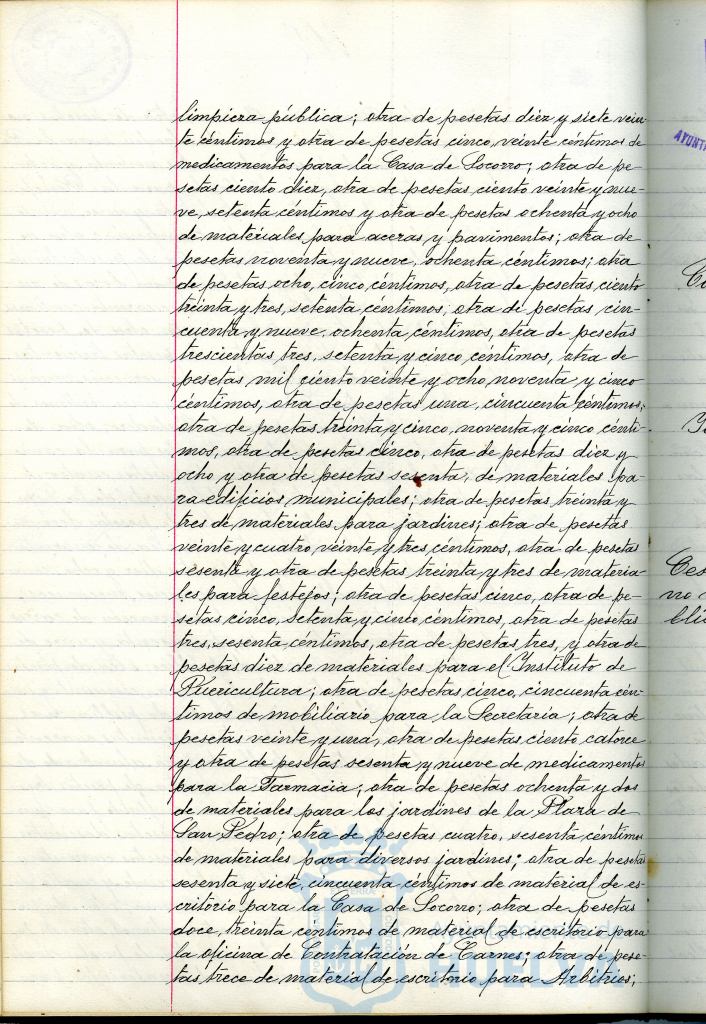 limpieza pública; otra de pesetas diez y siete vein-
te céntimos y otra de pesetas cinco, veinte céntimos de
medicamentos para la Casa de Socorro; otra de pe-
setas ciento diez, otra de pesetas ciento veinte y nue-
ve, setenta céntimos y otra de pesetas ochenta y ocho
de materiales para aceras y pavimentos; otra de
pesetas noventa y nueve, ochenta céntimos; otra
de pesetas ocho, cinco céntimos, otra de pesetas, ciento
treinta y tres, setenta céntimos, otra de pesetas cin-
cuenta y nueve, ochenta céntimos, otra de pesetas
trescientas tres, setenta y cinco céntimos, otra de
pesetas mil ciento veinte y ocho noventa y cinco
céntimos, otra de pesetas una, cincuenta céntimos,
otra de pesetas treinta y cinco, noventa y cinco cénti-
mos, otra de pesetas cinco, otra de pesetas diez y
ocho y otra de pesetas sesenta, de materiales pa-
ra edificios municipales; otra de pesetas treinta y
tres de materiales para jardines; otra de pesetas
veinte y cuatro veinte y tres céntimos, otra de pesetas
sesenta y otra de pesetas treinta y tres de materia-
les para festejos; otra de pesetas cinco, otra de pe-
setas cinco, setenta y cinco céntimos, otra de pesetas
tres, sesenta céntimos, otra de pesetas tres, y otra de
pesetas diez de materiales para el Instituto de
Puericultura; otra de pesetas cinco, cincuenta cén-
timos de mobiliario para la Secretaría; otra de
pesetas veinte y una, otra de pesetas ciento catorce
y otra de pesetas sesenta y nueve de medicamentos
para la Farmacia; otra de pesetas ochenta y dos
de materiales para los jardines de la Plaza de
San Pedro; otra de pesetas cuatro, sesenta céntimos
de materiales para diversos jardines; otra de pesetas
sesenta y siete, cincuenta céntimos de material de es-
critorio para la Casa de Socorro; otra de pesetas
doce, treinta céntimos de material de escritorio para
la oficina de Contratación de Carnes; otra de pese-
tas trece de material de escritorio para Arbitrios;